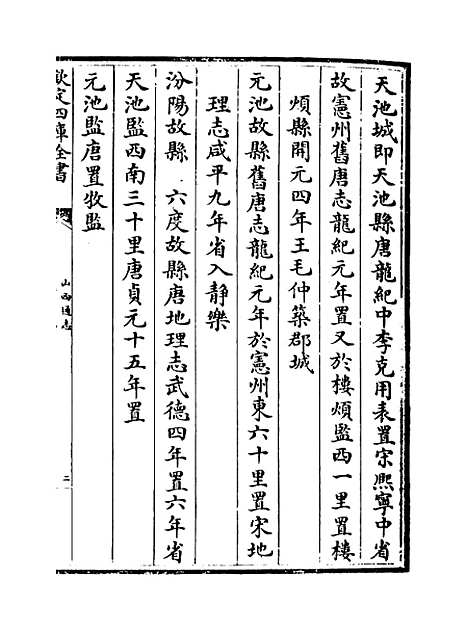 天池城即天池縣唐龍紀中李克用表置宋熈寧中省
故憲州舊唐志龍紀元年置又於樓煩監西一里置樓
煩縣開元四年王毛仲築郡城
元池故縣舊唐志龍紀元年於憲州東六十里置宋地
理志咸平九年省入静樂
汾陽故縣 六度故縣唐地理志武德四年置六年省
天池監西南三十里唐貞元十五年置
元池監唐置牧監
欽定四庫全書
山西通志
二